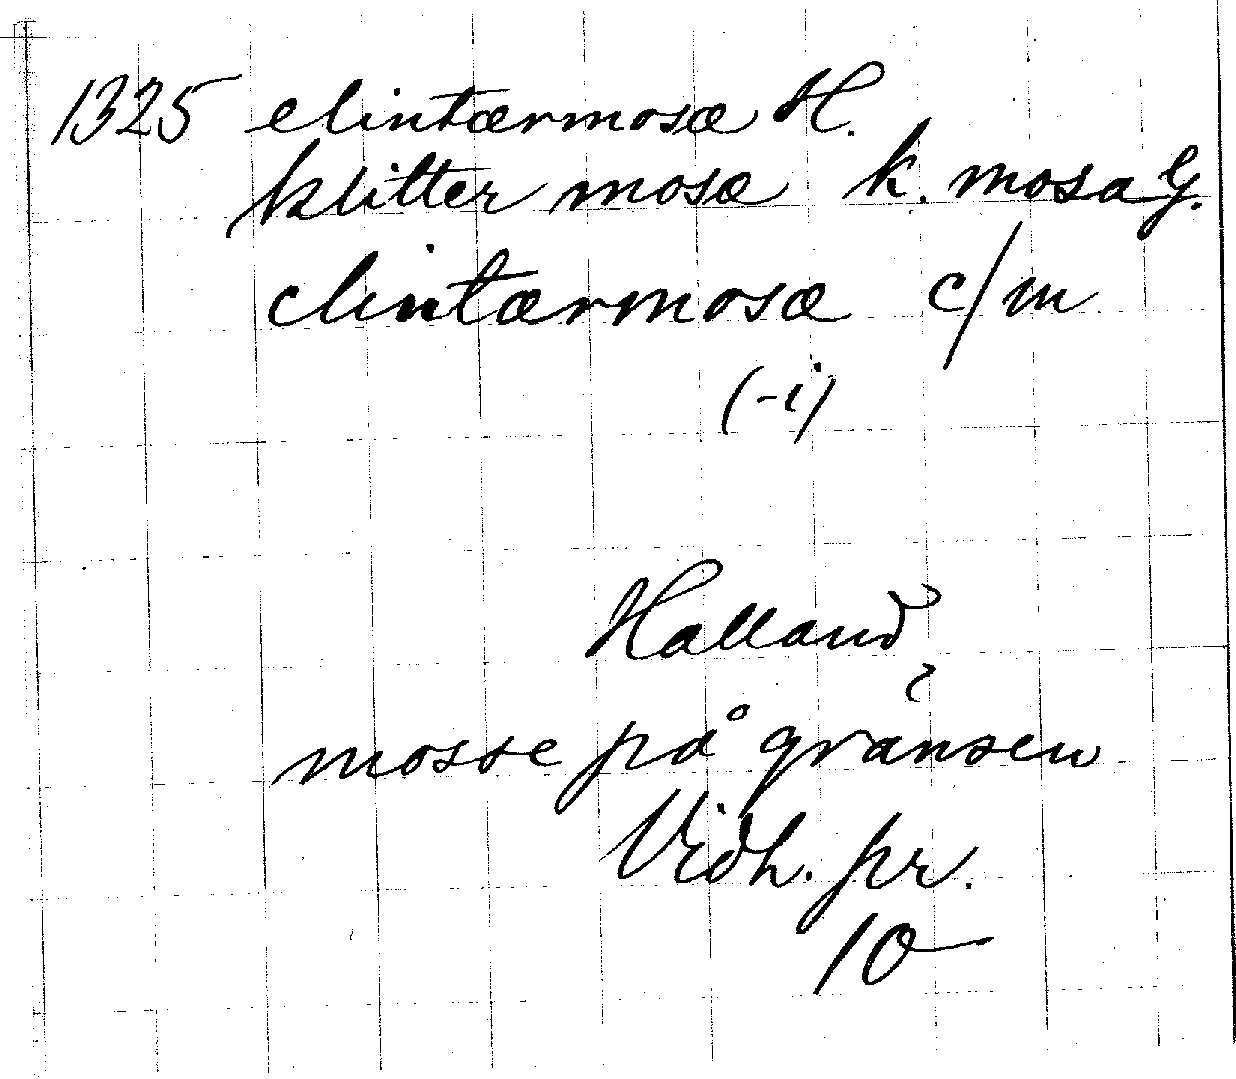 1325 clintærmosæ H.
klitter mosæ k. mosa G.
clintærmosæ c/m
(-i)
Halland,
mosse på gränsen
Vidh. pr.
10